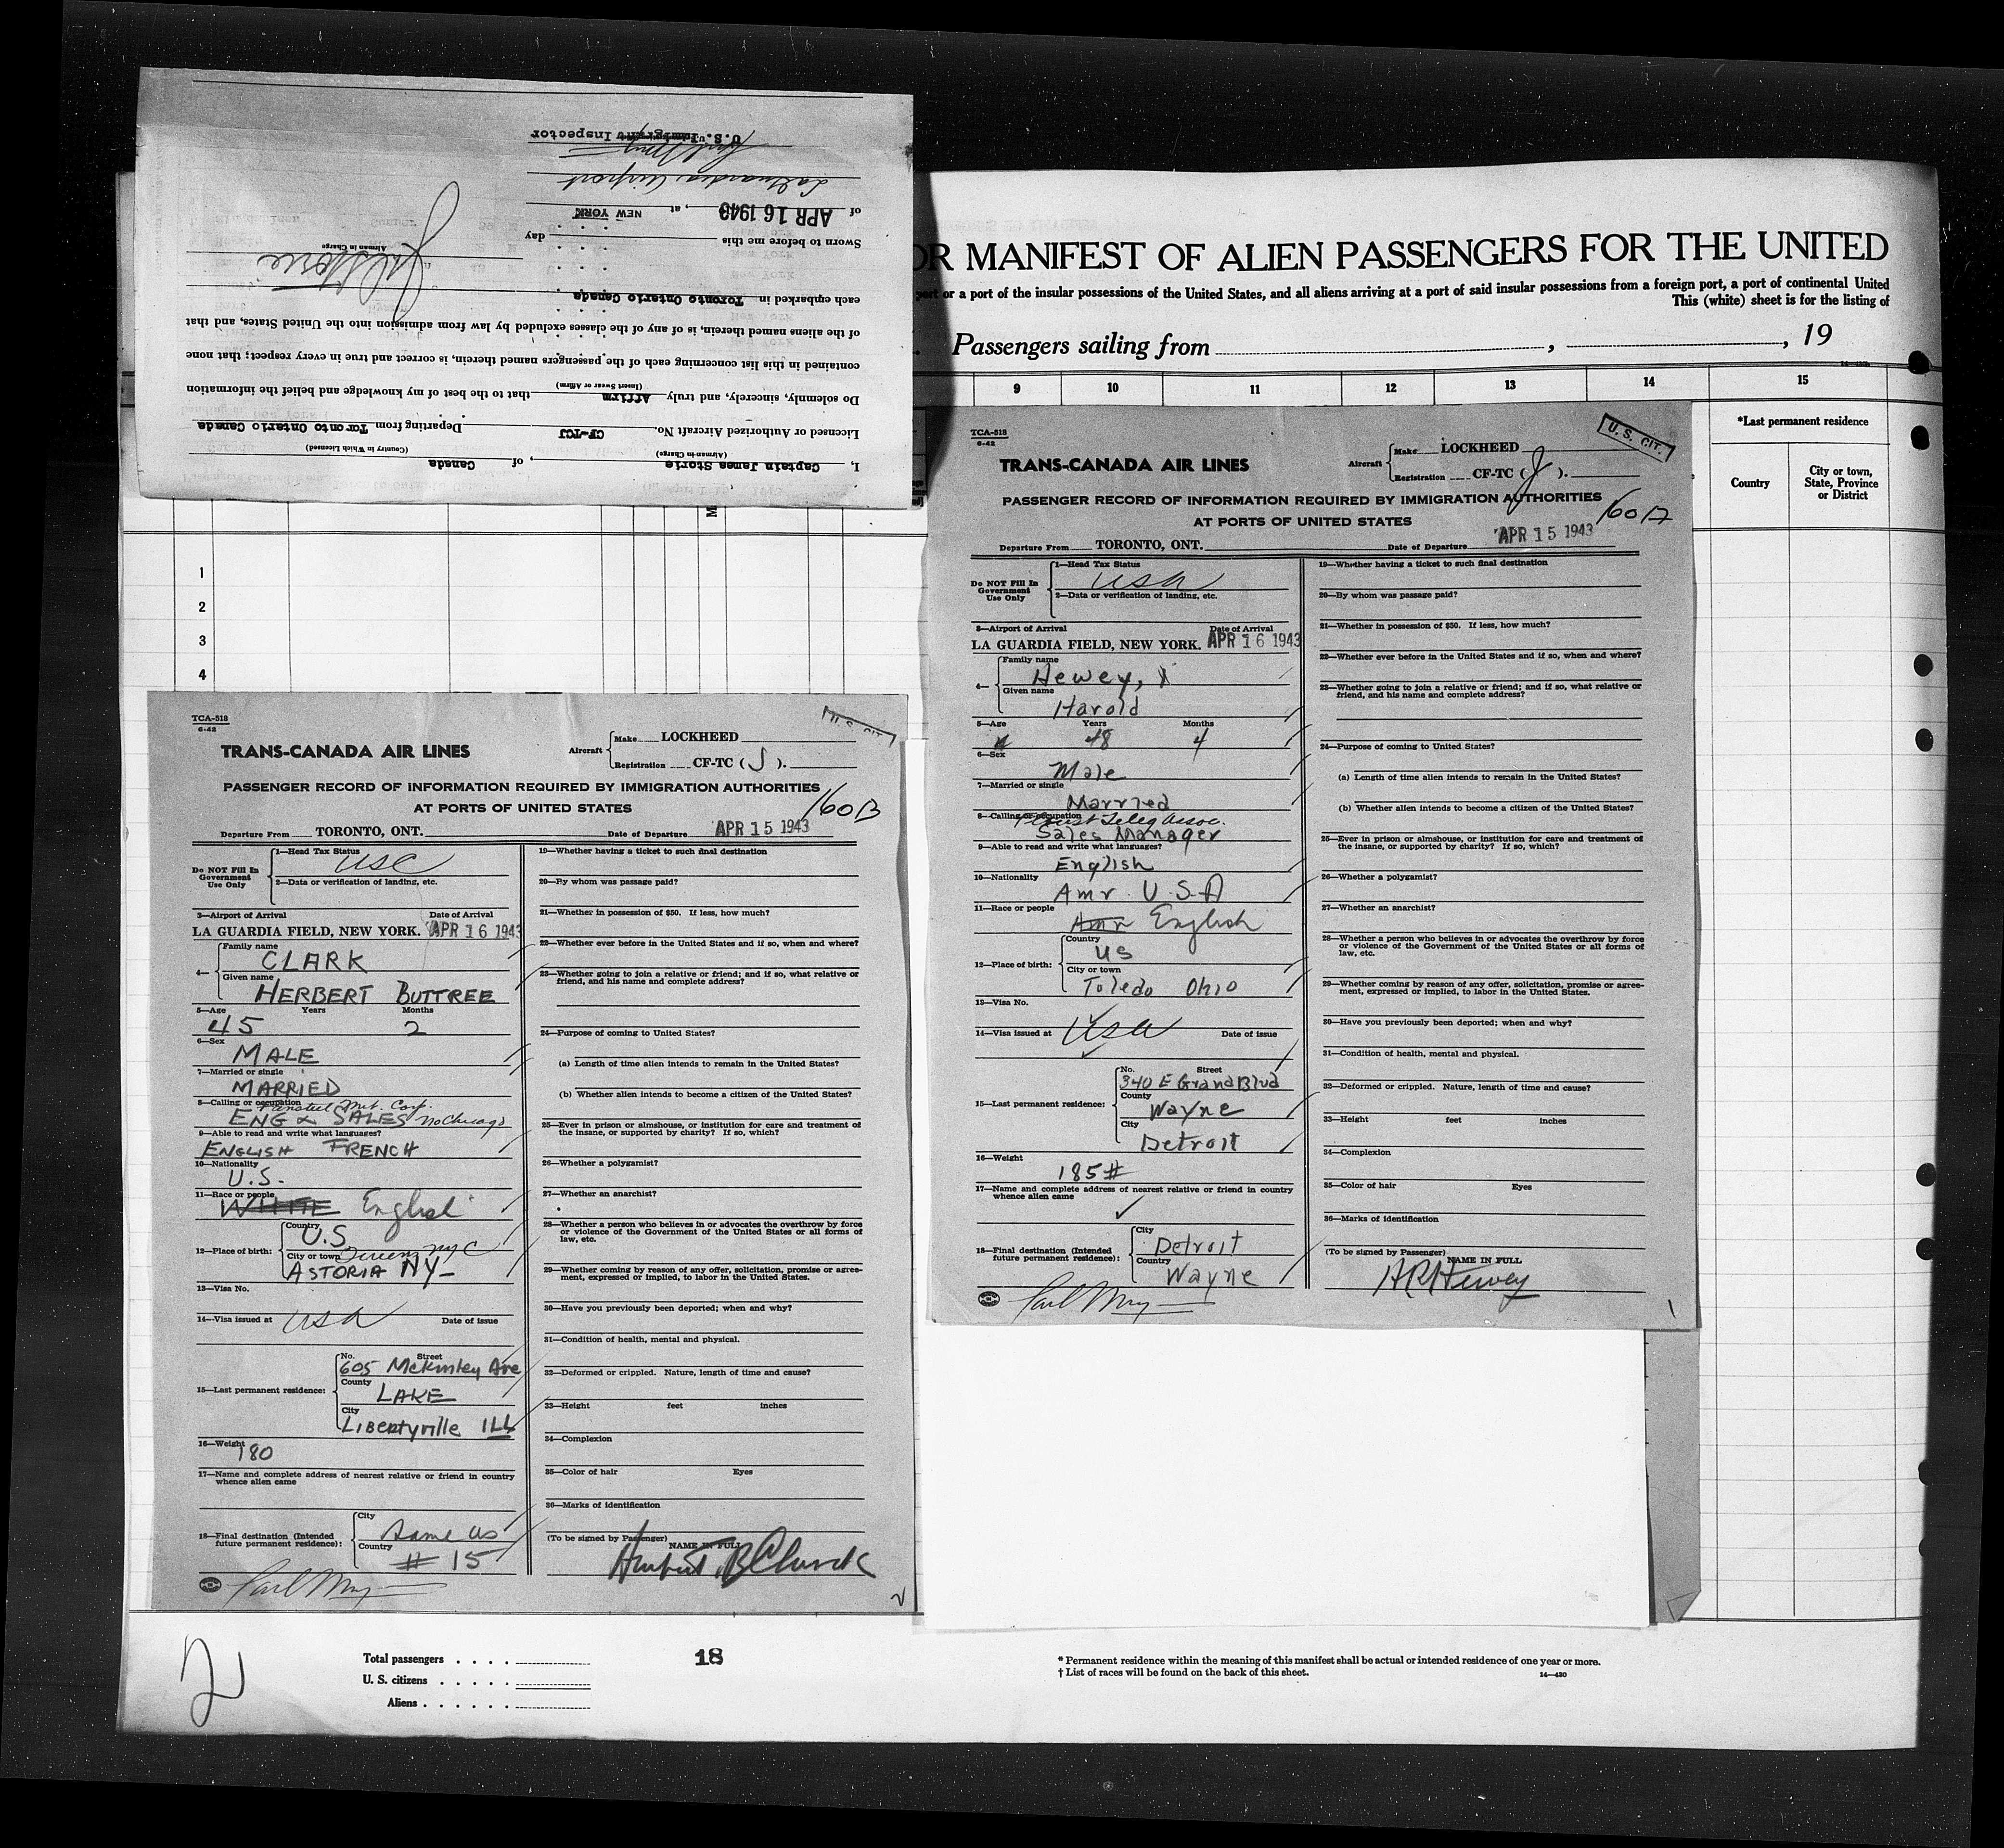 I, Captain James Storie , of Canada
(Airman in Charge) (Country in Which Licensed)
Licensed or Authorized Aircraft No. CF-TCJ Departing from Toronto Ontario Canada
Do solemnly, sincerely, and truly Affirm that to the best of my knowledge and belief the information
(Insert Swear or Affirm)
contained in this list concerning each of the passengers named therein, is correct and true in every respect; that none
of the aliens named therein, is of any of the classes excluded by law from admission into the United States, and that
each embarked in Toronto Ontario Canada
Airman in Charge
Sworn to before me this day
of APR 16 1943 , at NEW YORK
LaGuardia Airport
U.S. Immigrant Inspector
OR MANIFEST OF ALIEN PASSENGERS FOR THE UNITED
port or a port of the insular possessions of the United States, and all aliens arriving at a port of said insular possessions from a foreign port, a port of continental United
This (white) sheet is for the listing of
Passengers sailing from , , 19
14—420
9 10 11 12 13 14 15
*Last permanent residence
Country
City or town, State, Province or District
1
2
3
4
TCA-518
6-42
U.S. CIT.
TRANS-CANADA AIR LINES
Aircraft
Make LOCKHEED
Registration CF-TC ( J ).
PASSENGER RECORD OF INFORMATION REQUIRED BY IMMIGRATION AUTHORITIES
AT PORTS OF UNITED STATES
160B
Departure From TORONTO, ONT. Date of Departure APR 15 1943
Do NOT Fill In Government Use Only
1—Head Tax Status
USC
2—Data or verification of landing, etc.
3—Airport of Arrival Date of Arrival
LA GUARDIA FIELD, NEW YORK. APR 16 1943
4—
Family name
CLARK
Given name
HERBERT BUTTREE
5—Age Years Months
45 2
6—Sex
MALE
7—Married or single
MARRIED
8—Calling or occupation
Mnt. Corp.
ENG & SALES No Chicago
9—Able to read and write what languages?
ENGLISH FRENCH
10—Nationality
U.S.
11—Race or people
WHITE English
12—Place of birth:
Country
U.S
City or town NYC
ASTORIA NY
13—Visa No.
14—Visa issued at USA Date of issue
15—Last permanent residence:
No. Street
605 McKinley Ave
County
LAKE
City
Libertyville ILL
16—Weight
180
17—Name and complete address of nearest relative or friend in country
whence alien came
18—Final destination (Intended
future permanent residence):
City
Same as
Country
# 15
19—Whether having a ticket to such final destination
20—By whom was passage paid?
21—Whether in possession of $50. If less, how much?
22—Whether ever before in the United States and if so, when and where?
23—Whether going to join a relative or friend; and if so, what relative or
friend, and his name and complete address?
24—Purpose of coming to United States?
(a) Length of time alien intends to remain in the United States?
(b) Whether alien intends to become a citizen of the United States?
25—Ever in prison or almshouse, or institution for care and treatment of
the insane, or supported by charity? If so, which?
26—Whether a polygamist?
27—Whether an anarchist?
28—Whether a person who believes in or advocates the overthrow by force
or violence of the Government of the United States or all forms of
law, etc.
29—Whether coming by reason of any offer, solicitation, promise or agree-
ment, expressed or implied, to labor in the United States.
30—Have you previously been deported; when and why?
31—Condition of health, mental and physical.
32—Deformed or crippled. Nature, length of time and cause?
33—Height feet inches
34—Complexion
35—Color of hair Eyes
36—Marks of identification
(To be signed by Passenger) NAME IN FULL
Herbert B Clark
2
TCA-518
6-42
U.S. CIT.
TRANS-CANADA AIR LINES
Aircraft
Make LOCKHEED
Registration CF-TC ( J ).
PASSENGER RECORD OF INFORMATION REQUIRED BY IMMIGRATION AUTHORITIES
AT PORTS OF UNITED STATES
160A
Departure From TORONTO, ONT. Date of Departure APR 15 1943
Do NOT Fill In Government Use Only
1—Head Tax Status
USA
2—Data or verification of landing, etc.
3—Airport of Arrival Date of Arrival
LA GUARDIA FIELD, NEW YORK. APR 16 1943
4—
Family name
Hewey,
Given name
Harold
5—Age Years Months
48 4
6—Sex
Male
7—Married or single
Married
8—Calling or occupation
Teleg Assoc.
Sales Manager
9—Able to read and write what languages?
English
10—Nationality
Amr. U.S.A
11—Race or people
Amr English
12—Place of birth:
Country
US
City or town
Toledo Ohio
13—Visa No.
14—Visa issued at USA Date of issue
15—Last permanent residence:
No. Street
340 E Grand Blvd
County
Wayne
City
Detroit
16—Weight
185#
17—Name and complete address of nearest relative or friend in country
whence alien came
18—Final destination (Intended
future permanent residence):
City
Detroit
Country
Wayne
19—Whether having a ticket to such final destination
20—By whom was passage paid?
21—Whether in possession of $50. If less, how much?
22—Whether ever before in the United States and if so, when and where?
23—Whether going to join a relative or friend; and if so, what relative or
friend, and his name and complete address?
24—Purpose of coming to United States?
(a) Length of time alien intends to remain in the United States?
(b) Whether alien intends to become a citizen of the United States?
25—Ever in prison or almshouse, or institution for care and treatment of
the insane, or supported by charity? If so, which?
26—Whether a polygamist?
27—Whether an anarchist?
28—Whether a person who believes in or advocates the overthrow by force
or violence of the Government of the United States or all forms of
law, etc.
29—Whether coming by reason of any offer, solicitation, promise or agree-
ment, expressed or implied, to labor in the United States.
30—Have you previously been deported; when and why?
31—Condition of health, mental and physical.
32—Deformed or crippled. Nature, length of time and cause?
33—Height feet inches
34—Complexion
35—Color of hair Eyes
36—Marks of identification
(To be signed by Passenger) NAME IN FULL
H R Hewey
1
21
Total passengers
U. S. citizens
Aliens
18
* Permanent residence within the meaning of this manifest shall be actual or intended residence of one year or more.
† List of races will be found on the back of this sheet.
14—420